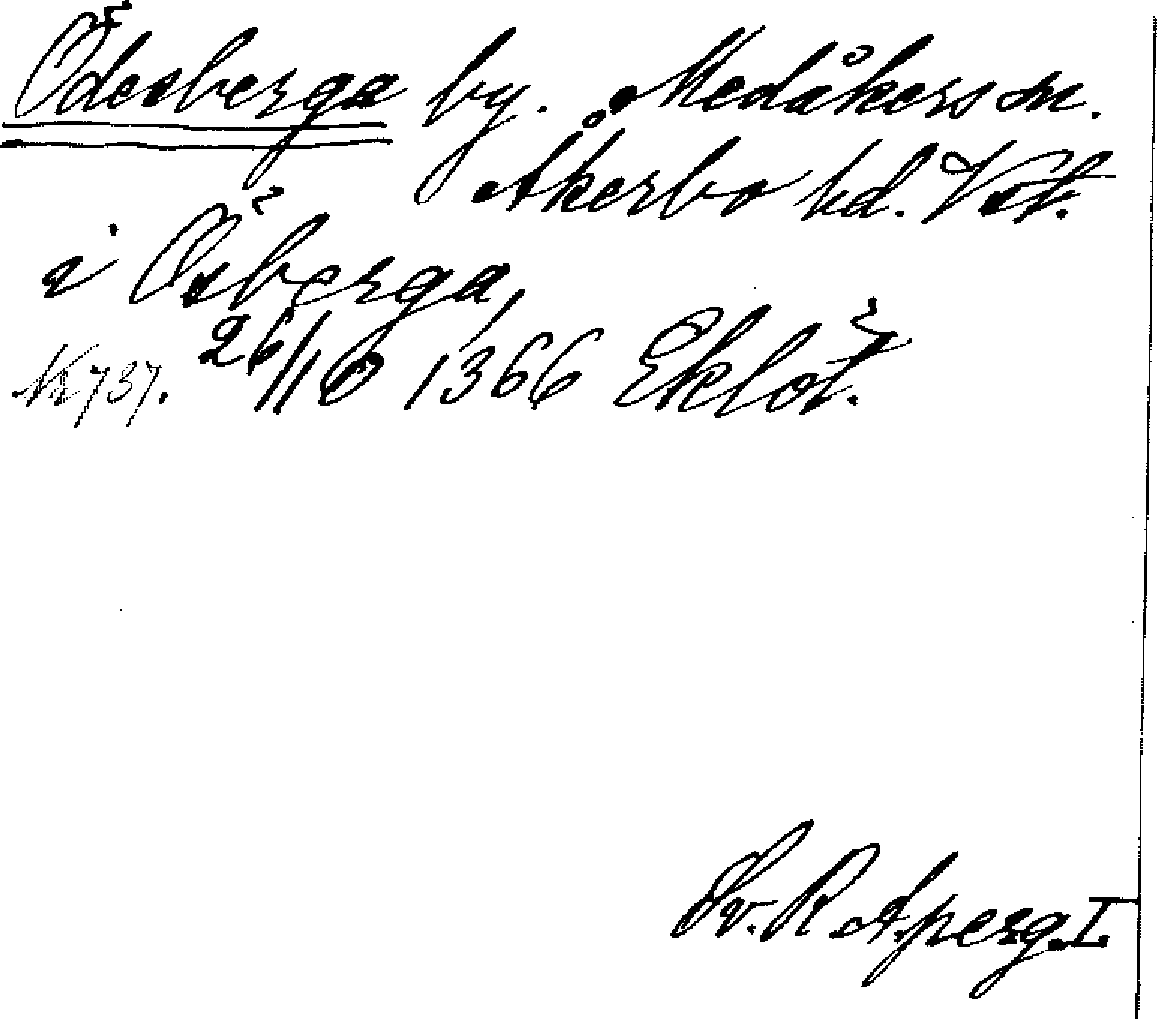 Ödesberga by. Medåkers sn.
Åkerbo hd. Vstm.
i Ösberga,
N:o 737. 26/10 1366 Eklöt.
Sv. R. A. perg. I.